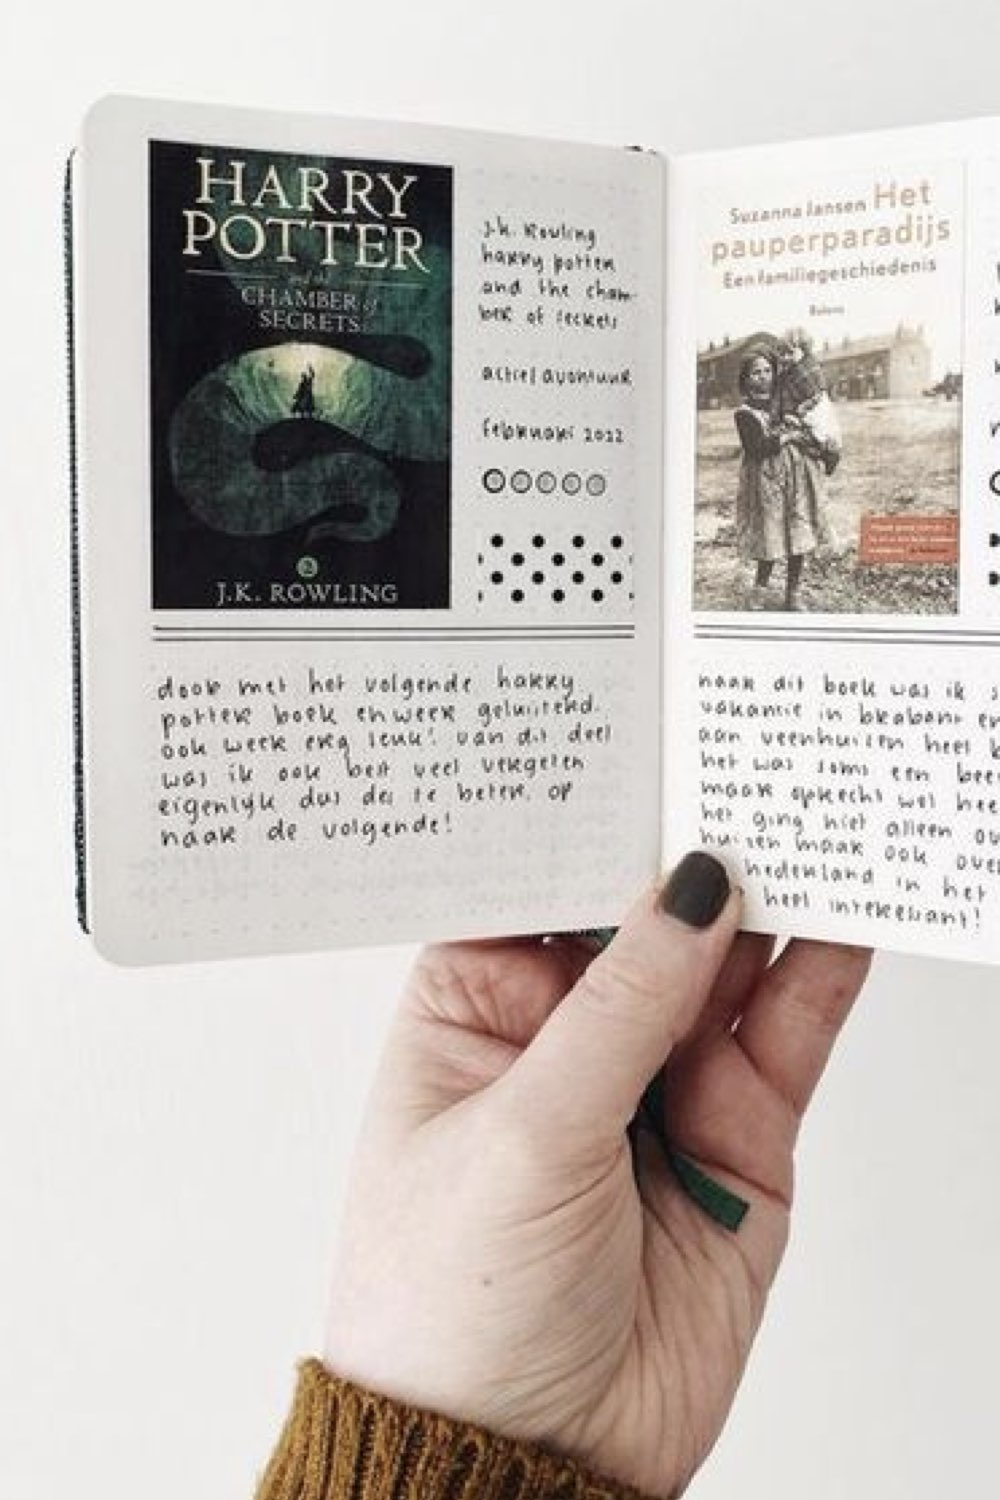 HARRY
POTTER
and the
CHAMBER of
SECRETS
2
J.K. ROWLING
J.K. Rowling
harry potter
and the cham-
ber of secrets
actie/avontuur
februari 2022
door met het volgende harry
potter boek en weer geluisterd.
ook weer erg leuk! van dit deel
was ik ook best veel vergeten
eigenlijk dus des te beter. op
naar de volgende!
Suzanna Jansen Het
pauperparadijs
Een familiegeschiedenis
Balans
naar dit boek was ik
vakantie in brabant en
aan veenhuizen heel
het was soms een
maar oprecht wel
het ging niet alleen
huizen maar ook
nederland in het
heel interessant!